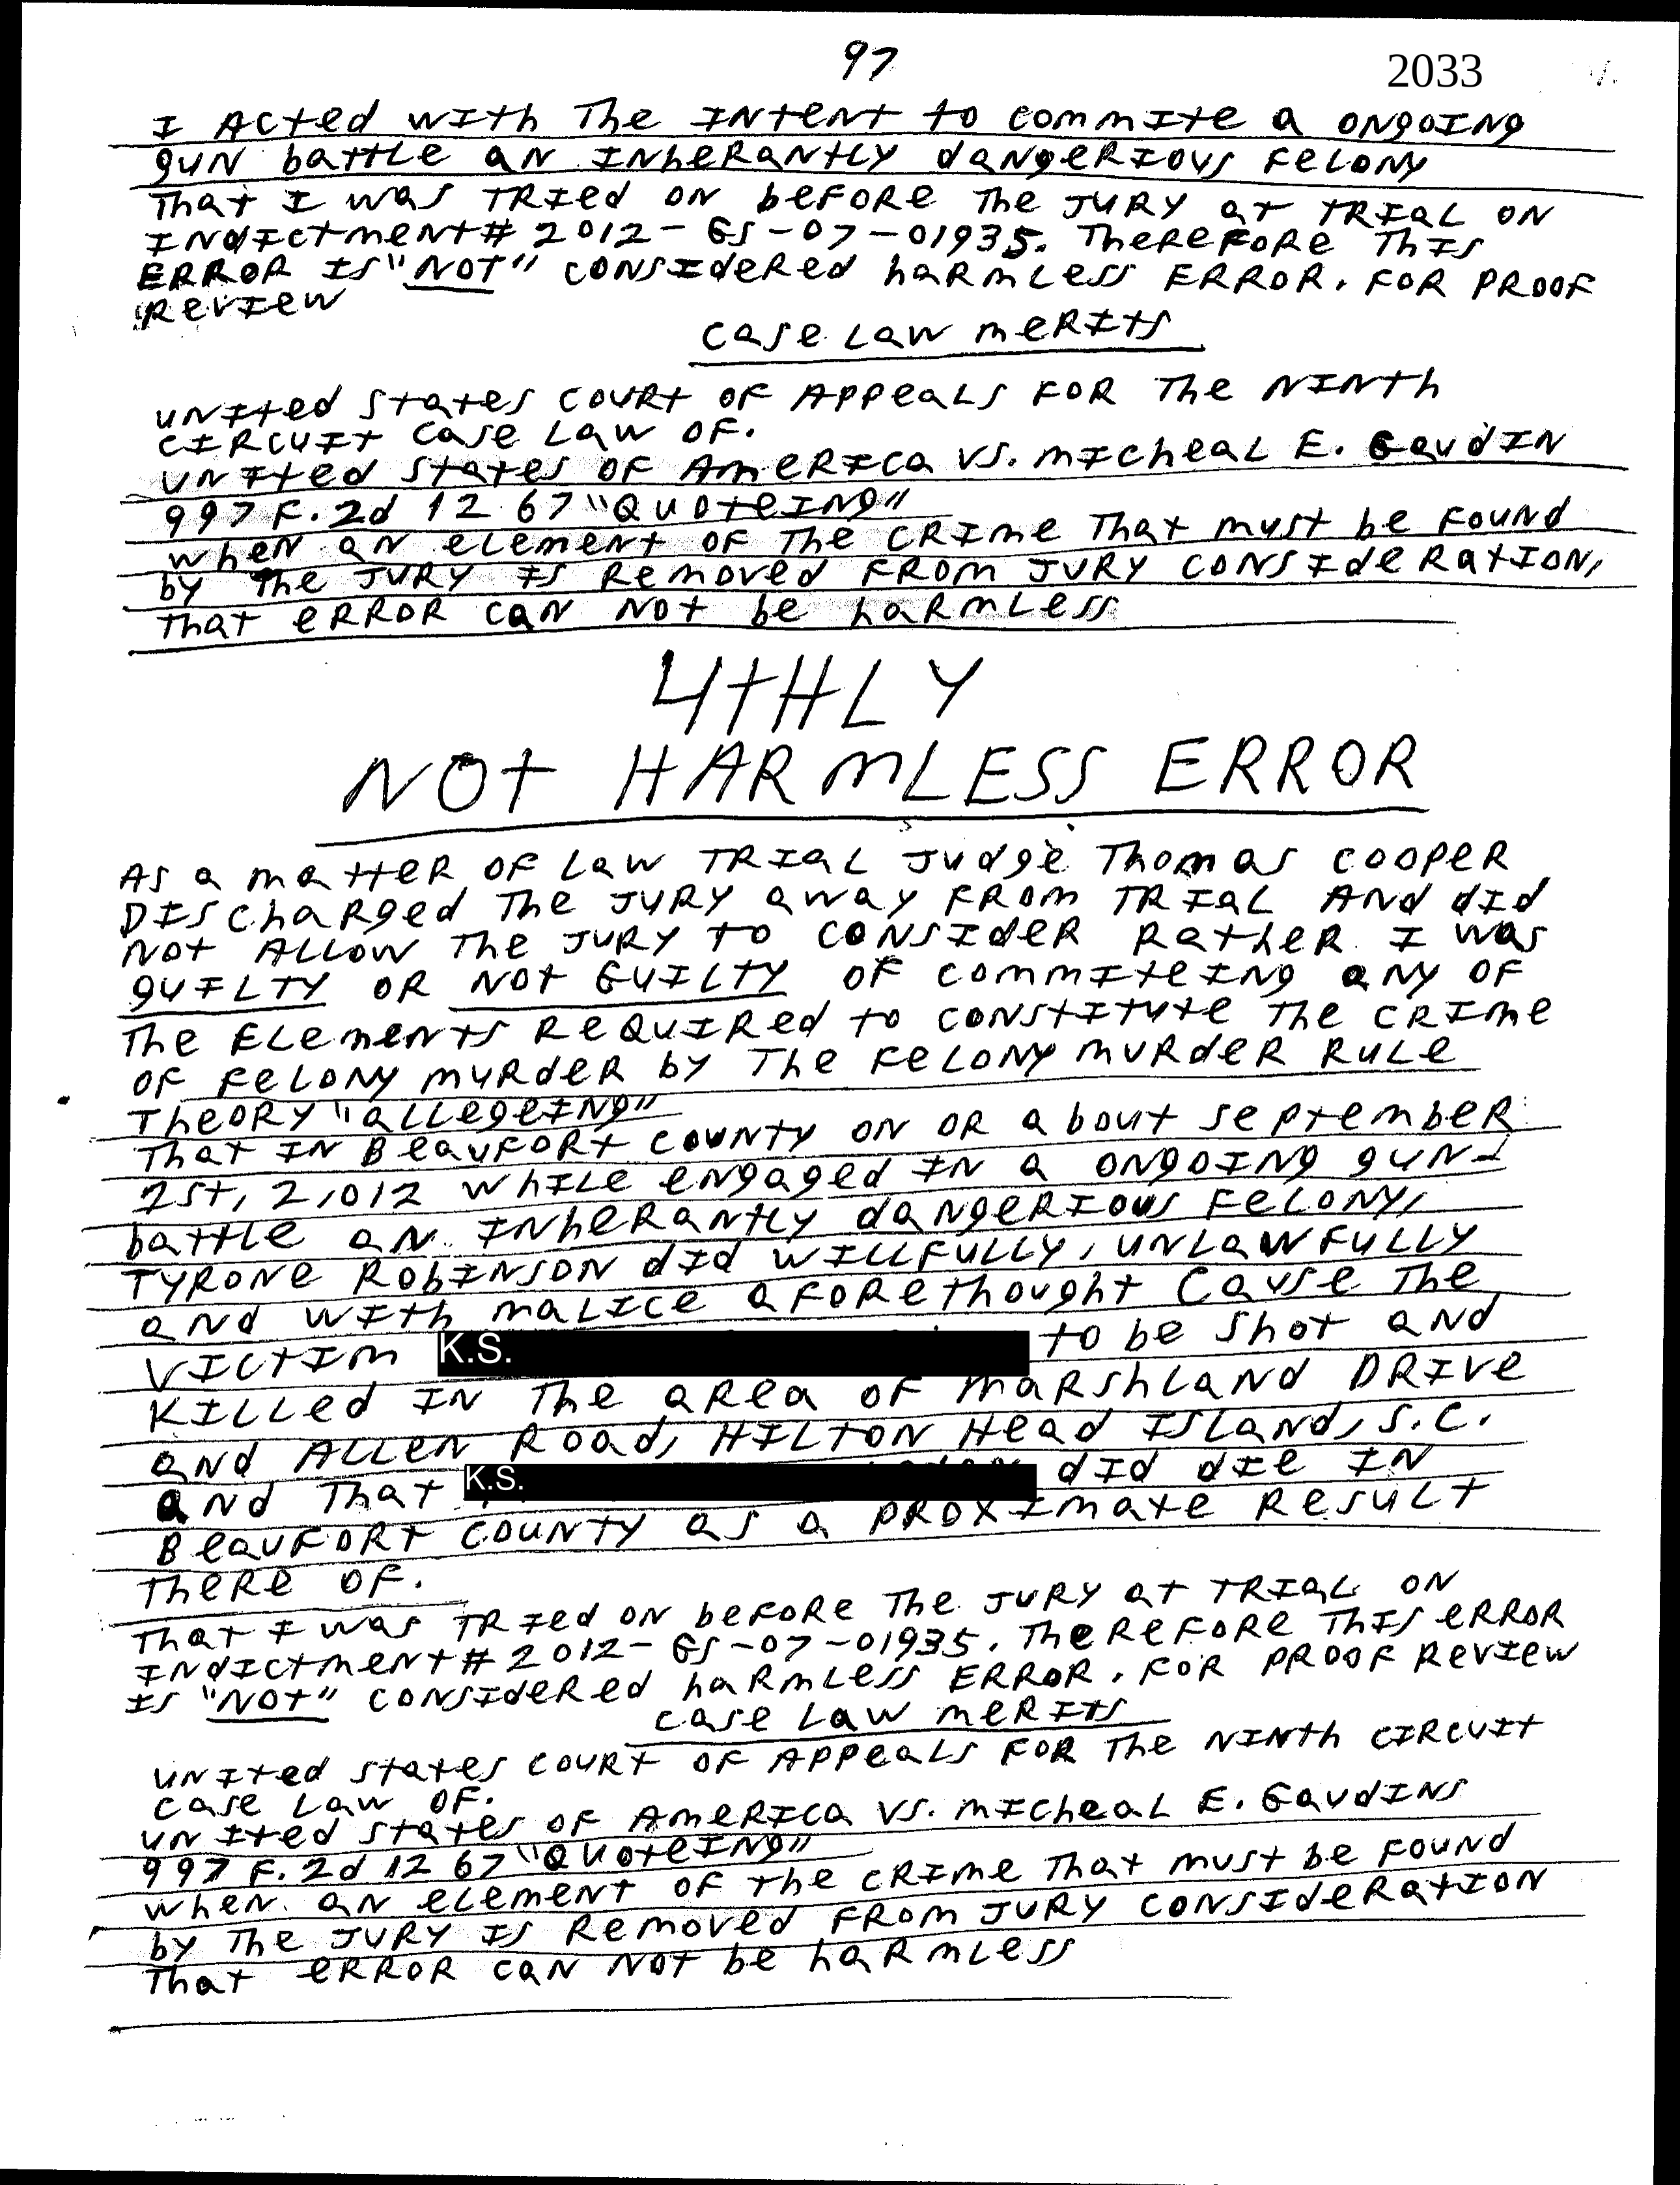 97
2033
I Acted with The INtent to commite a ongoing
gun battle an INherantly dangerious Felony
That I was TRIed on before The JURY at TRIAL ON
INdictment# 2012-GS-07-01935. Therefore This
ERROR Is "NOT" considered harmless ERROR. For proof
Review
case Law merits
united states court of Appeals For The Ninth
CIRCUIT case Law OF.
United States OF America vs. micheal E. Gaudin
997 F.2d 12 67 "Quoteing"
when an element of The crime That must be found
by The JURY Is Removed From JURY consideration,
That error can not be harmless
4THLY
NOT HARMLESS ERROR
As a matter of Law TRIAL Judge Thomas Cooper
Discharged The JURY away From TRIAL And did
not ALLOW The JURY to consider Rather I was
guilty or NOT Guilty of commiteing any of
The Elements Required to constitute The crime
of Felony murder by The Felony murder Rule
Theory "allegeing"
That IN Beaufort county on or about september
1st, 2,012 while engaged in a ongoing gun-
battle an INherantly dangerious Felony,
Tyrone Robinson did willfully, unlawfully
and with malice aforethought Cause The
Victim K.S. to be shot and
Killed in The area of marshland Drive
and Allen Road, Hilton Head Island, S.C.
and That K.S. did die in
Beaufort county as a proximate Result
There of.
That I was TRIed on before The JURY at TRIAL ON
INdictment# 2012-GS-07-01935. Therefore This error
Is "NOT" considered harmless ERROR. For proof Review
case Law merits
united states court of Appeals For The Ninth circuit
case Law OF.
United States of America vs. micheal E. Gaudins
997 F.2d 12 67 "Quoteing"
when an element of the crime That must be found
by The JURY Is Removed From JURY consideration
That error can not be harmless